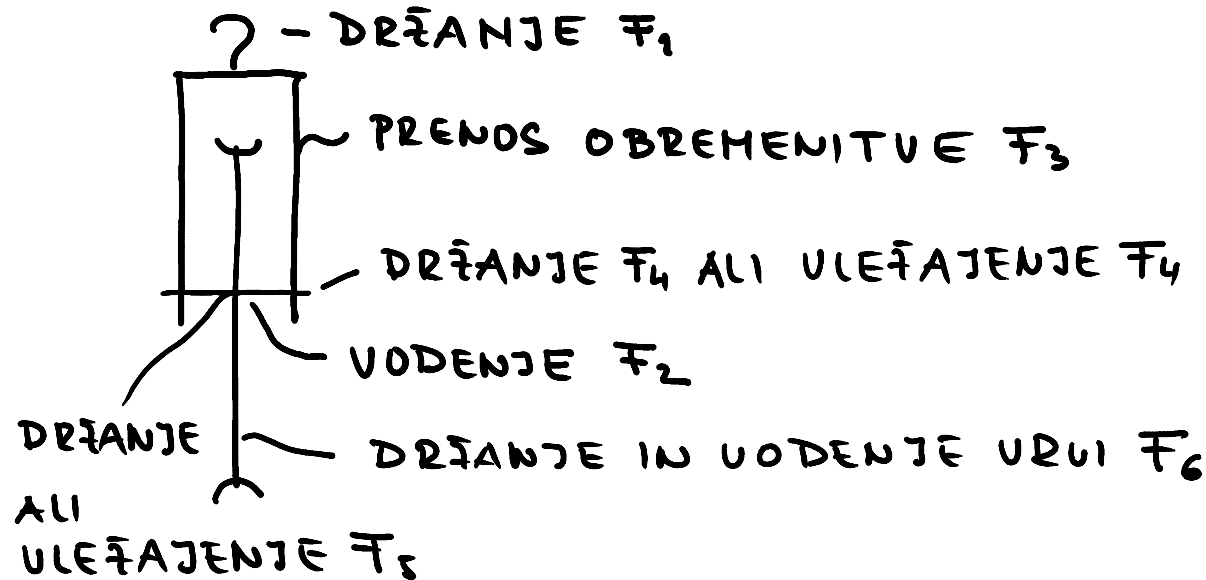 DRŽANJE F1
PRENOS OBREMENITVE F3
DRŽANJE F4 ALI ULEŽAJENJE F4
VODENJE F2
DRŽANJE
ALI
ULEŽAJENJE F5
DRŽANJE IN VODENJE VRVI F6